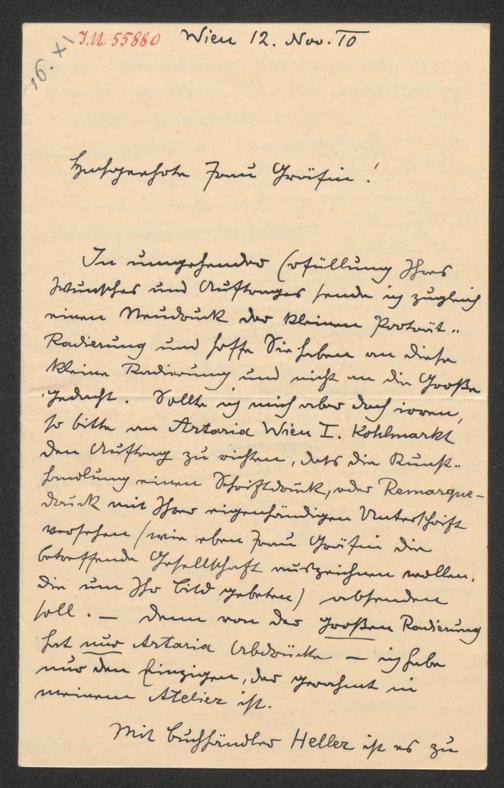 16. XI
I.N. 55880
Wien 12. Nov. 10
Hochgeehrte Frau Gräfin!
In umgehender Erfüllung Ihres
Wunsches und Auftrages sende ich zugleich
einen Neudruck der kleinen Porträt-
Radierung und hoffe Sie haben an diese
kleine Radierung und nicht an die Große
gedacht. Sollte ich mich aber doch irren,
so bitte an Artaria Wien I. Kohlmarkt
den Auftrag zu richten, dass die Kunst-
handlung einen Schriftdruck, oder Remarque-
druck mit Ihrer eigenhändigen Unterschrift
versehen (wie eben Frau Gräfin die
betreffende Gesellschaft auszeichnen wollen,
die um Ihr Bild gebeten) absenden
soll. — Denn von der großen Radierung
hat nur Artaria Abdrücke — ich habe
nur den Einzigen, der gerahmt in
meinem Atelier ist.
Mit Buchhändler Heller ist es zu